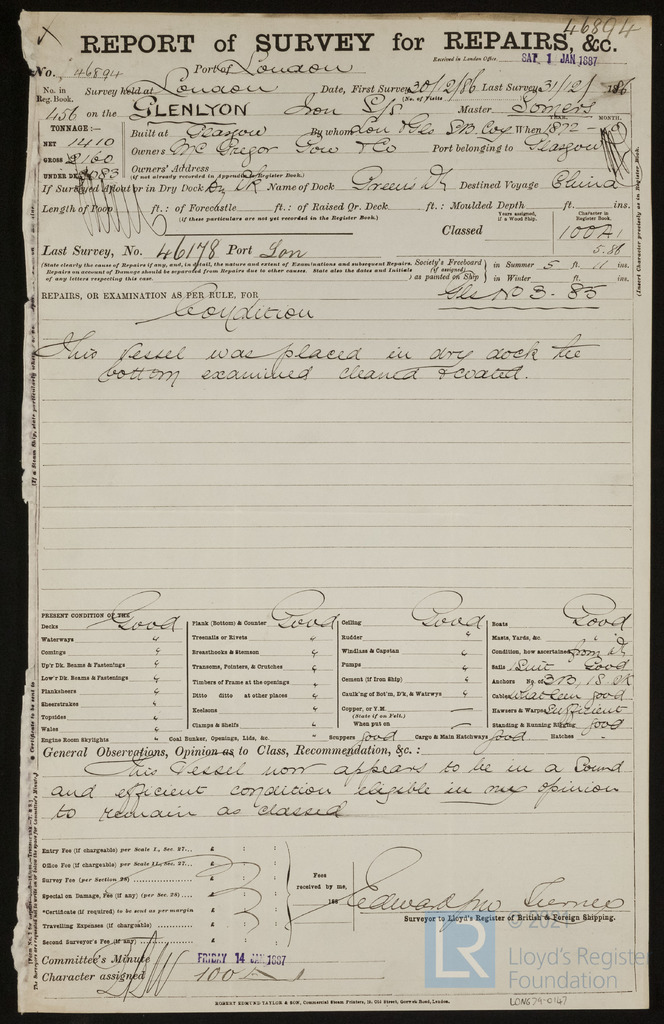 46894
REPORT of SURVEY for REPAIRS, &c.
Received in London Office SAT. 1 JAN 1887
No. 46894 Port of London
No. in Reg. Book. Survey held at London Date, First Survey 30/12/86 Last Survey 31/12/ 1886
(No. of Visits
456 on the GLENLYON Iron S/s Master Somers
TONNAGE:—
NET 1410
GROSS 2160
UNDER DK 2083
Built at Glasgow By whom Lon & Gls S.B. Coy When 1872 YEAR. MONTH.
Owners McGregor Gow & Co Port belonging to Glasgow
Owners' Address
(if not already recorded in Appendix to Register Book.)
If Surveyed afloat or in Dry Dock Dry Dk Name of Dock Green's Dk Destined Voyage China
Length of Poop ft.: of Forecastle ft.: of Raised Qr. Deck ft.: Moulded Depth ft. ins.
(if these particulars are not yet recorded in the Register Book.)
Years assigned, if a Wood Ship. Character in Register Book.
Classed 100A1
5.86
Last Survey, No. 46178 Port Lon
(State clearly the cause of Repairs if any, and, in detail, the nature and extent of Examinations and subsequent Repairs. Repairs on account of Damage should be separated from Repairs due to other causes. State also the dates and Initials of any letters respecting this case.
Society's Freeboard (if assigned) as painted on Ship
in Summer 5 ft. 11 ins.
in Winter ft. ins.
REPAIRS, OR EXAMINATION AS PER RULE, FOR Gls No 3 - 85
Condition
This Vessel was placed in dry dock the
bottom examined cleaned & coated.
PRESENT CONDITION OF THE
Decks Good
Waterways "
Comings "
Up'r Dk. Beams & Fastenings "
Low'r Dk. Beams & Fastenings "
Planksheers "
Sheerstrakes "
Topsides "
Wales "
Engine Room Skylights "
Plank (Bottom) & Counter Good
Treenails or Rivets "
Breasthooks & Stemson "
Transoms, Pointers, & Crutches "
Timbers of Frame at the openings "
Ditto ditto at other places "
Keelsons "
Clamps & Shelfs "
Coal Bunker, Openings, Lids, &c. "
Ceiling Good
Rudder "
Windlass & Capstan "
Pumps "
Cement (if Iron Ship) "
Caulk'ng of Bot'm, D'k, & Watrwys "
Copper, or Y.M. —
(State if on Felt.)
When put on —
Scuppers good Cargo & Main Hatchways good Hatches "
Boats Good
Masts, Yards, &c. "
Condition, how ascertained from Dk
Sails Suit Good
Anchors No. of 3B, 1S, 1K
Cables what seen good
Hawsers & Warps Sufficient
Standing & Running Rigging good
General Observations, Opinion as to Class, Recommendation, &c.:
This Vessel now appears to be in a Sound
and efficient condition eligible in my opinion
to remain as classed
Entry Fee (if chargeable) per Scale I., Sec. 27... £ : :
Office Fee (if chargeable) per Scale II., Sec. 27... £ : :
Survey Fee (per Section 28) £ : :
Special on Damage, Fee (if any) (per Sec. 28) £ : :
*Certificate (if required) to be sent as per margin
Travelling Expenses (if chargeable) £ : :
Second Surveyor's Fee (if any) £ : :
Fees received by me, 188
Surveyor to Lloyd's Register of British & Foreign Shipping.
Committee's Minute FRIDAY 14 JAN 1887
Character assigned 100 A 1
ROBERT EDMUND TAYLOR & SON, Commercial Steam Printers, 19, Old Street, Goswell Road, London.
LR
Lloyd's Register
Foundation
LON679-0147